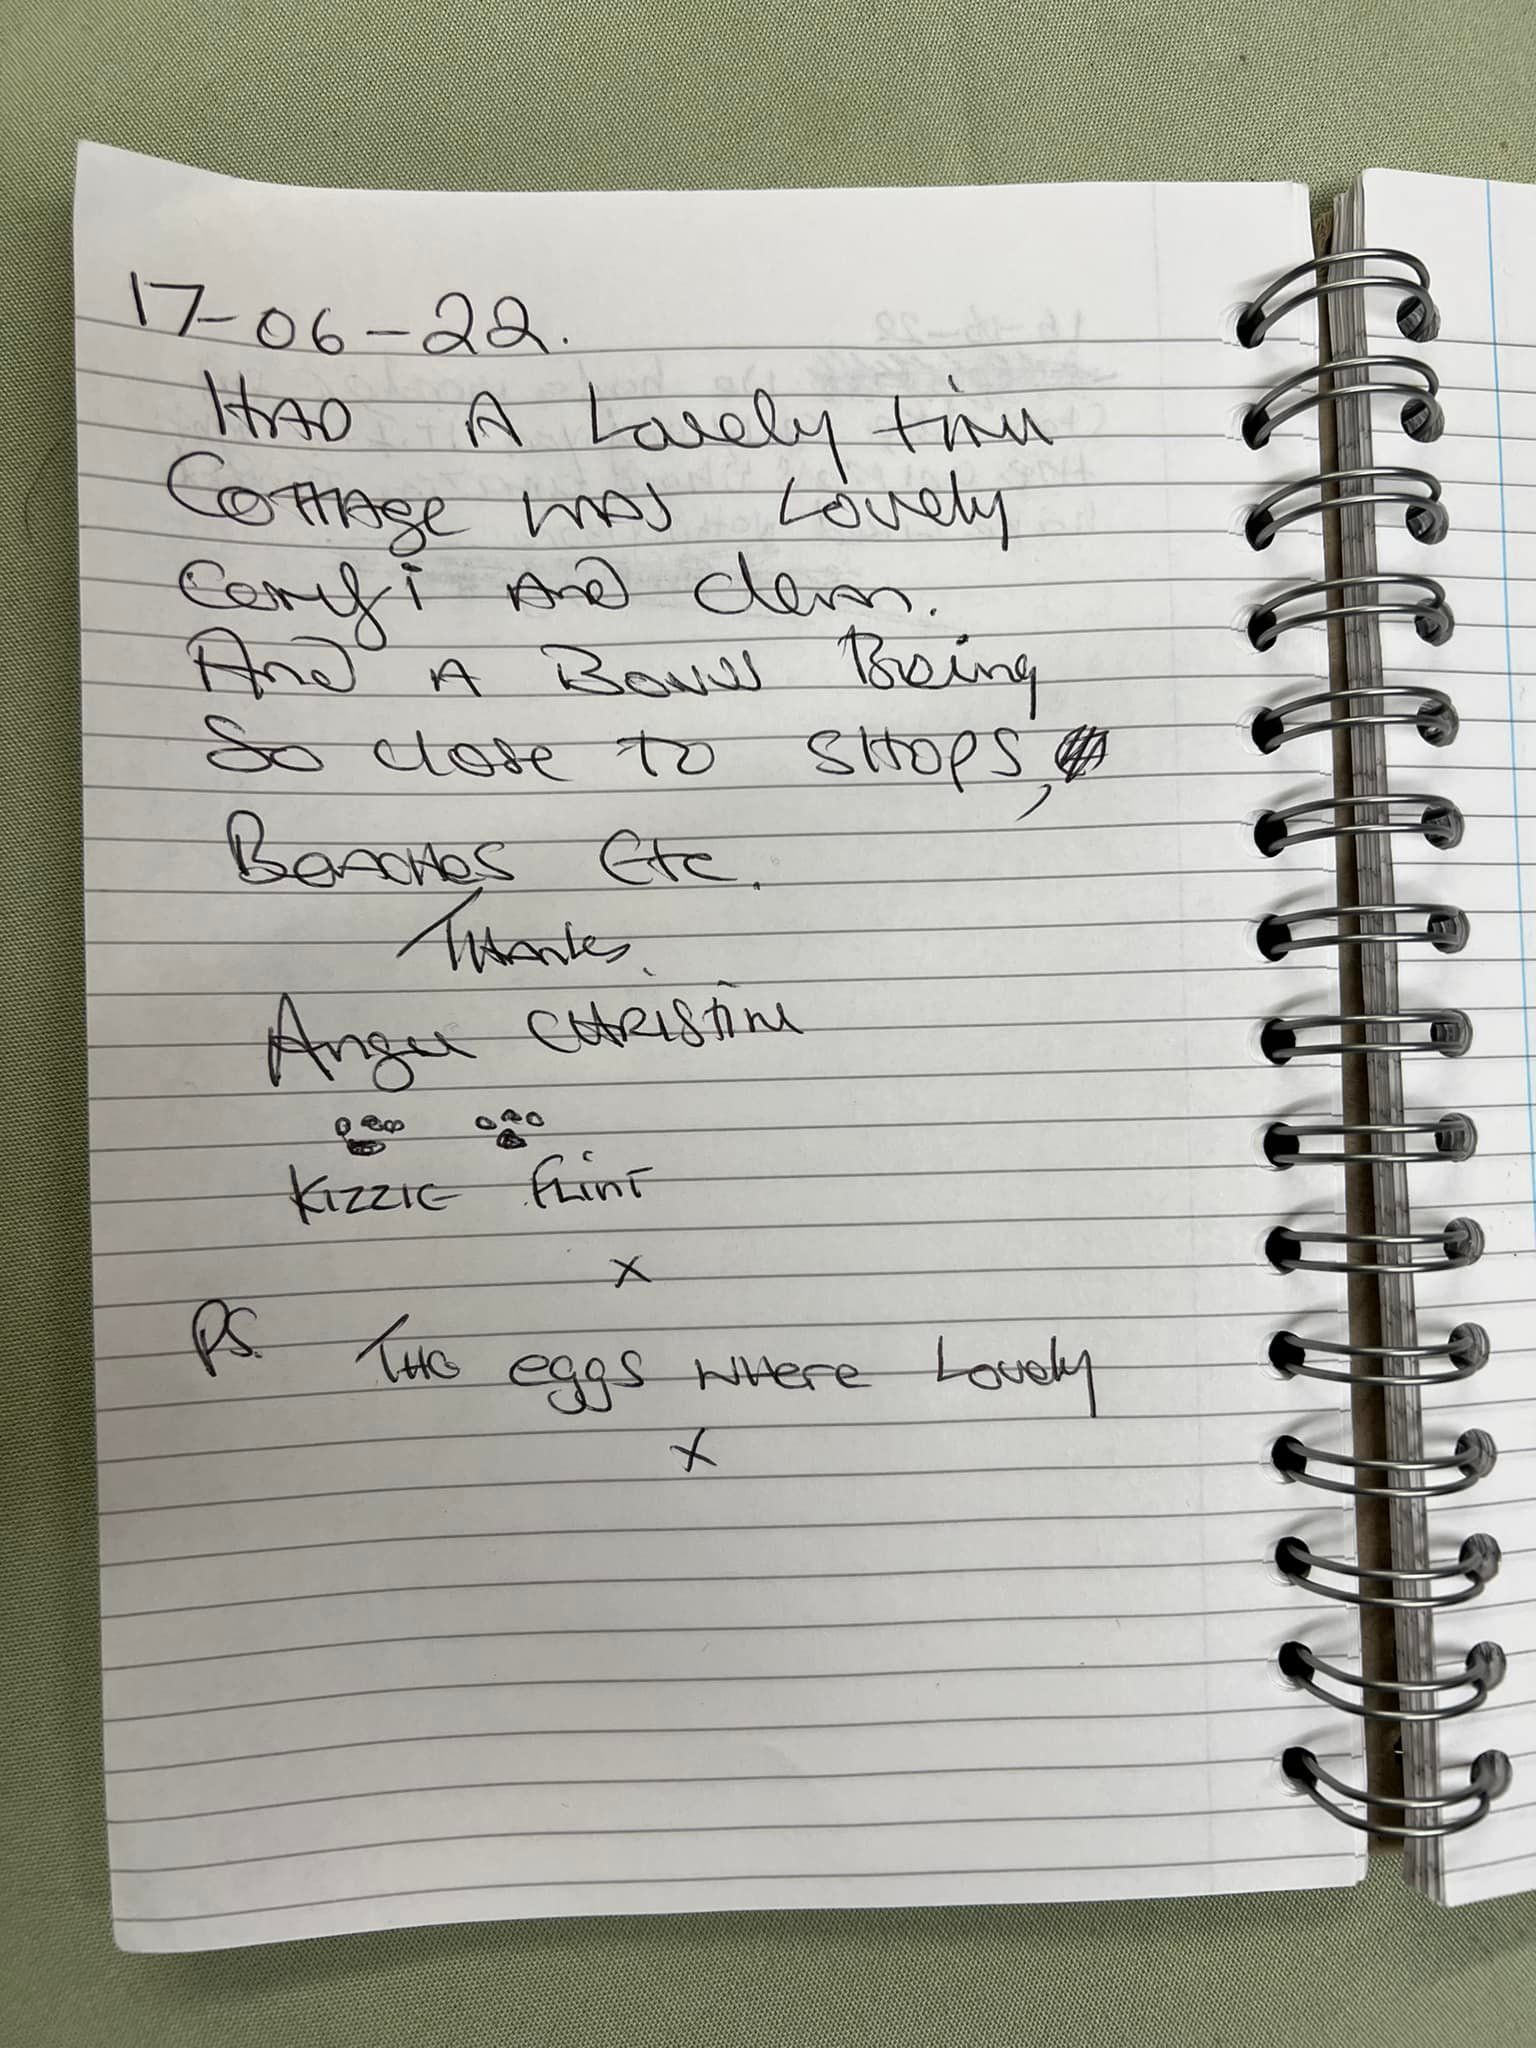 17-06-22.
HAD A Lovely time
Cottage was Lovely
Comfi And clean.
And A Bonus Being
So close to SHOPS,
Beaches Etc.
Thanks.
Angie CHRISTINE
KIZZIE FLINT
x
PS. THE eggs wHere Lovely
x